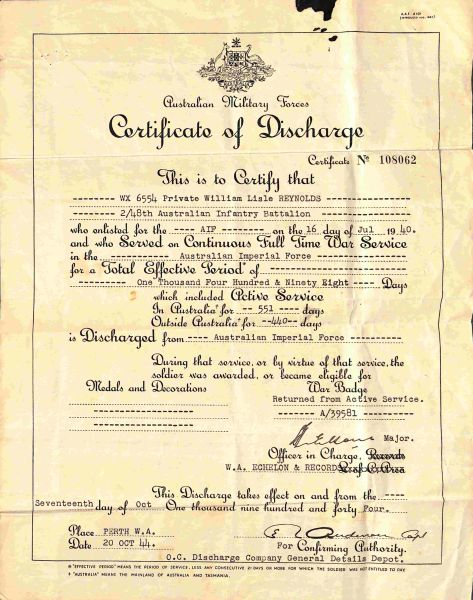 A.A.F. A101
Australian Military Forces
Certificate of Discharge
Certificate No 108062
This is to Certify that
WX 6554 Private William Lisle REYNOLDS
2/48th Australian Infantry Battalion
who enlisted for the ---- AIF ---- on the 16 day of Jul 1940.
and who Served on Continuous Full Time War Service
in the ---- Australian Imperial Force ----
for a Total Effective Period* of
One Thousand Four Hundred & Ninety Eight ---- Days
which included Active Service
In Australia‡ for -- 551 ---- days
Outside Australia‡ for --440-- days
is Discharged from ---- Australian Imperial Force ----
During that service, or by virtue of that service, the
soldier was awarded, or became eligible for
Medals and Decorations War Badge
Returned from Active Service.
------- A/39581 -------
Major.
Officer in Charge, Records
W.A. ECHELON & RECORDS
This Discharge takes effect on and from the ----
Seventeenth day of Oct One thousand nine hundred and forty Four.
Place PERTH W.A.
Date 20 OCT 44. For Confirming Authority.
O.C. Discharge Company General Details Depot.
* "EFFECTIVE PERIOD" MEANS THE PERIOD OF SERVICE, LESS ANY CONSECUTIVE 21 DAYS OR MORE FOR WHICH THE SOLDIER WAS NOT ENTITLED TO PAY
‡ "AUSTRALIA" MEANS THE MAINLAND OF AUSTRALIA AND TASMANIA.